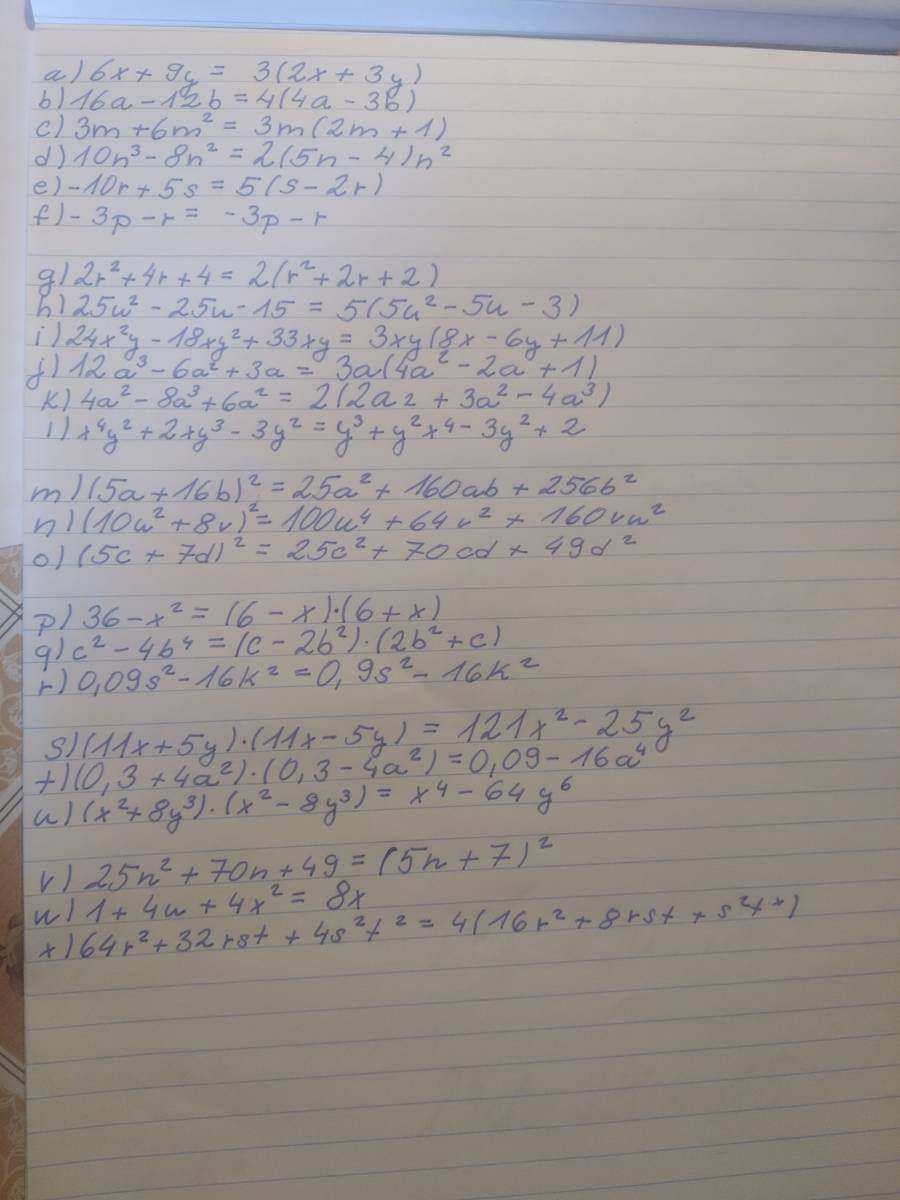 a) 6x + 9y = 3(2x + 3y)
b) 16a - 12b = 4(4a - 3b)
c) 3m + 6m² = 3m(2m + 1)
d) 10n³ - 8n² = 2(5n - 4)n²
e) -10r + 5s = 5(s - 2r)
f) -3p - r = -3p - r
g) 2r² + 4r + 4 = 2(r² + 2r + 2)
h) 25u² - 25u - 15 = 5(5u² - 5u - 3)
i) 24x²y - 18xy² + 33xy = 3xy(8x - 6y + 11)
j) 12a³ - 6a² + 3a = 3a(4a² - 2a + 1)
k) 4a² - 8a³ + 6a² = 2(2a2 + 3a² - 4a³)
l) x⁴y² + 2xy³ - 3y² = y³ + y²x⁴ - 3y² + 2
m) (5a + 16b)² = 25a² + 160ab + 256b²
n) (10u² + 8v)² = 100u⁴ + 64v² + 160vu²
o) (5c + 7d)² = 25c² + 70cd + 49d²
p) 36 - x² = (6 - x)·(6 + x)
q) c² - 4b⁴ = (c - 2b²)·(2b² + c)
r) 0,09s² - 16k² = 0,9s² - 16k²
s) (11x + 5y)·(11x - 5y) = 121x² - 25y²
t) (0,3 + 4a²)·(0,3 - 4a²) = 0,09 - 16a⁴
u) (x² + 8y³)·(x² - 8y³) = x⁴ - 64y⁶
v) 25n² + 70n + 49 = (5n + 7)²
w) 1 + 4u + 4x² = 8x
x) 64r² + 32rst + 4s²t² = 4(16r² + 8rst + s²t²)